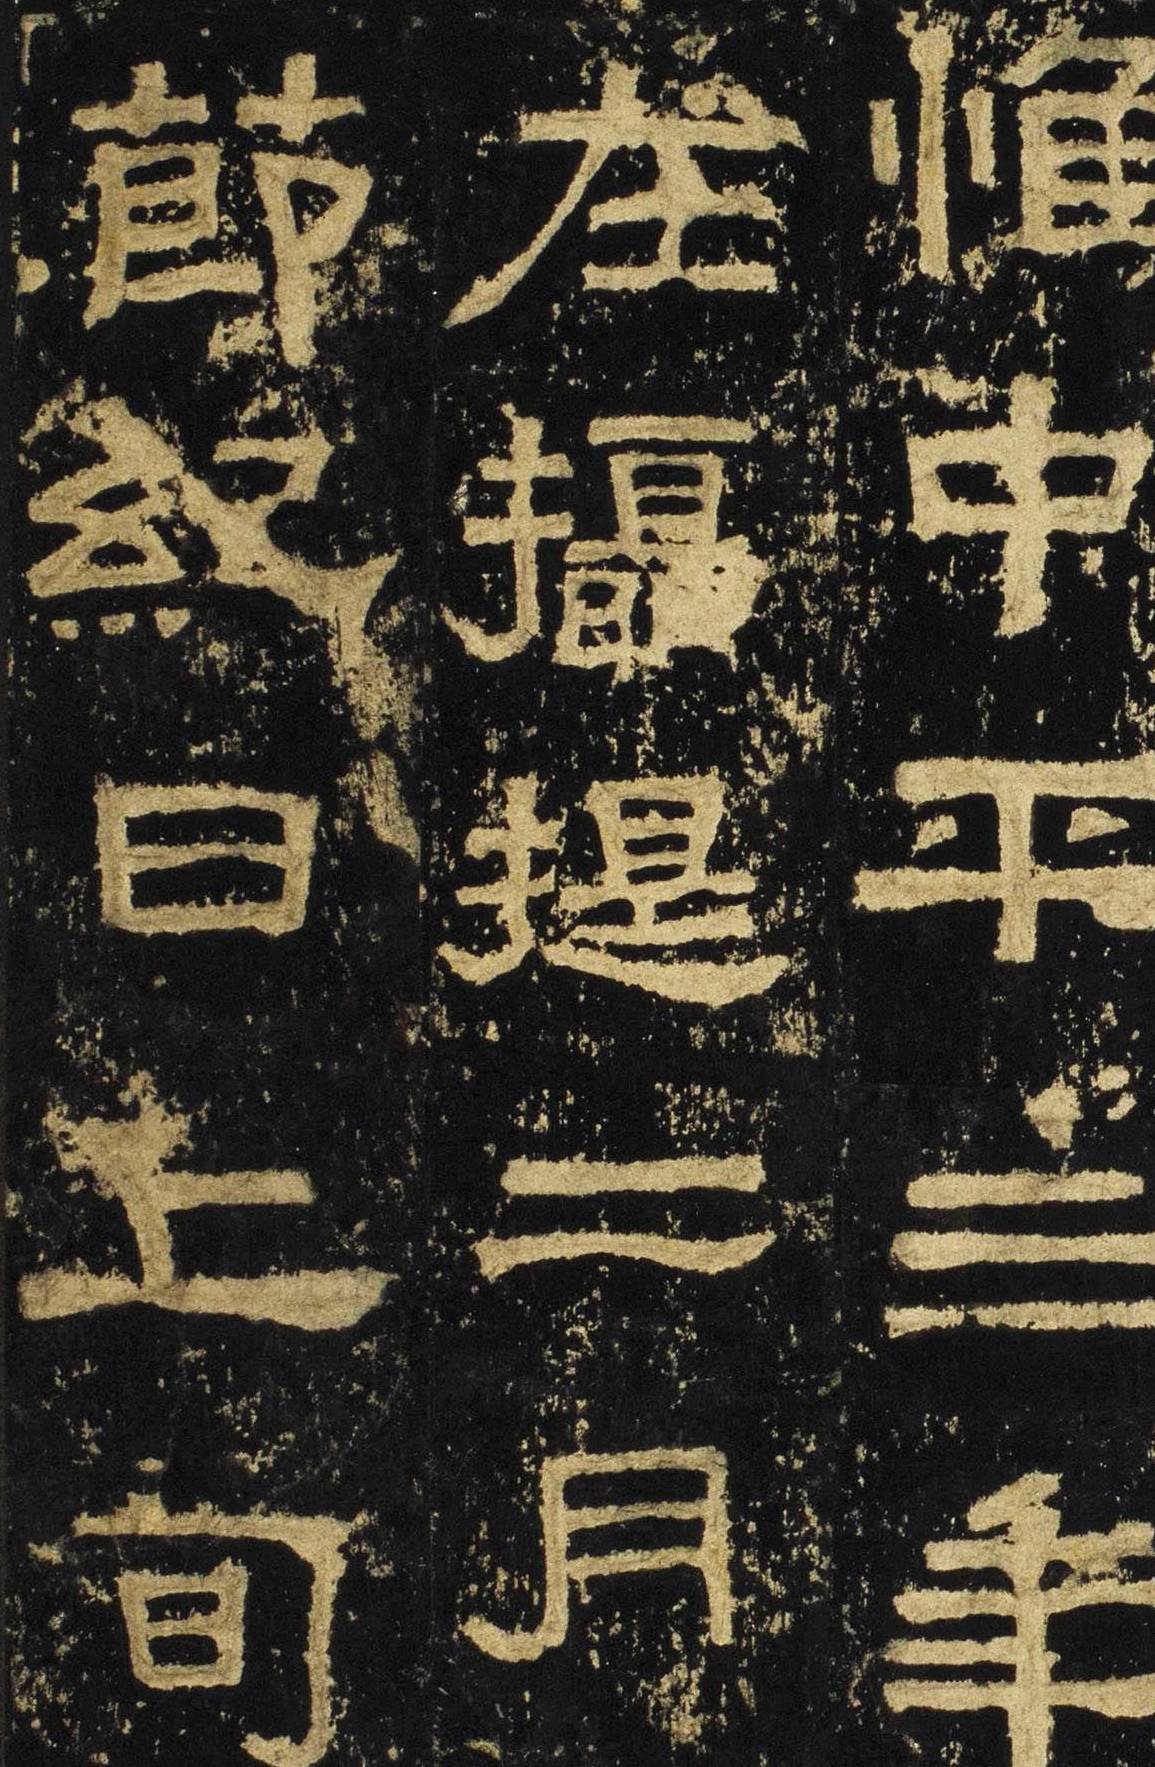 惟中平三年
在攝提二月
節紀日上旬